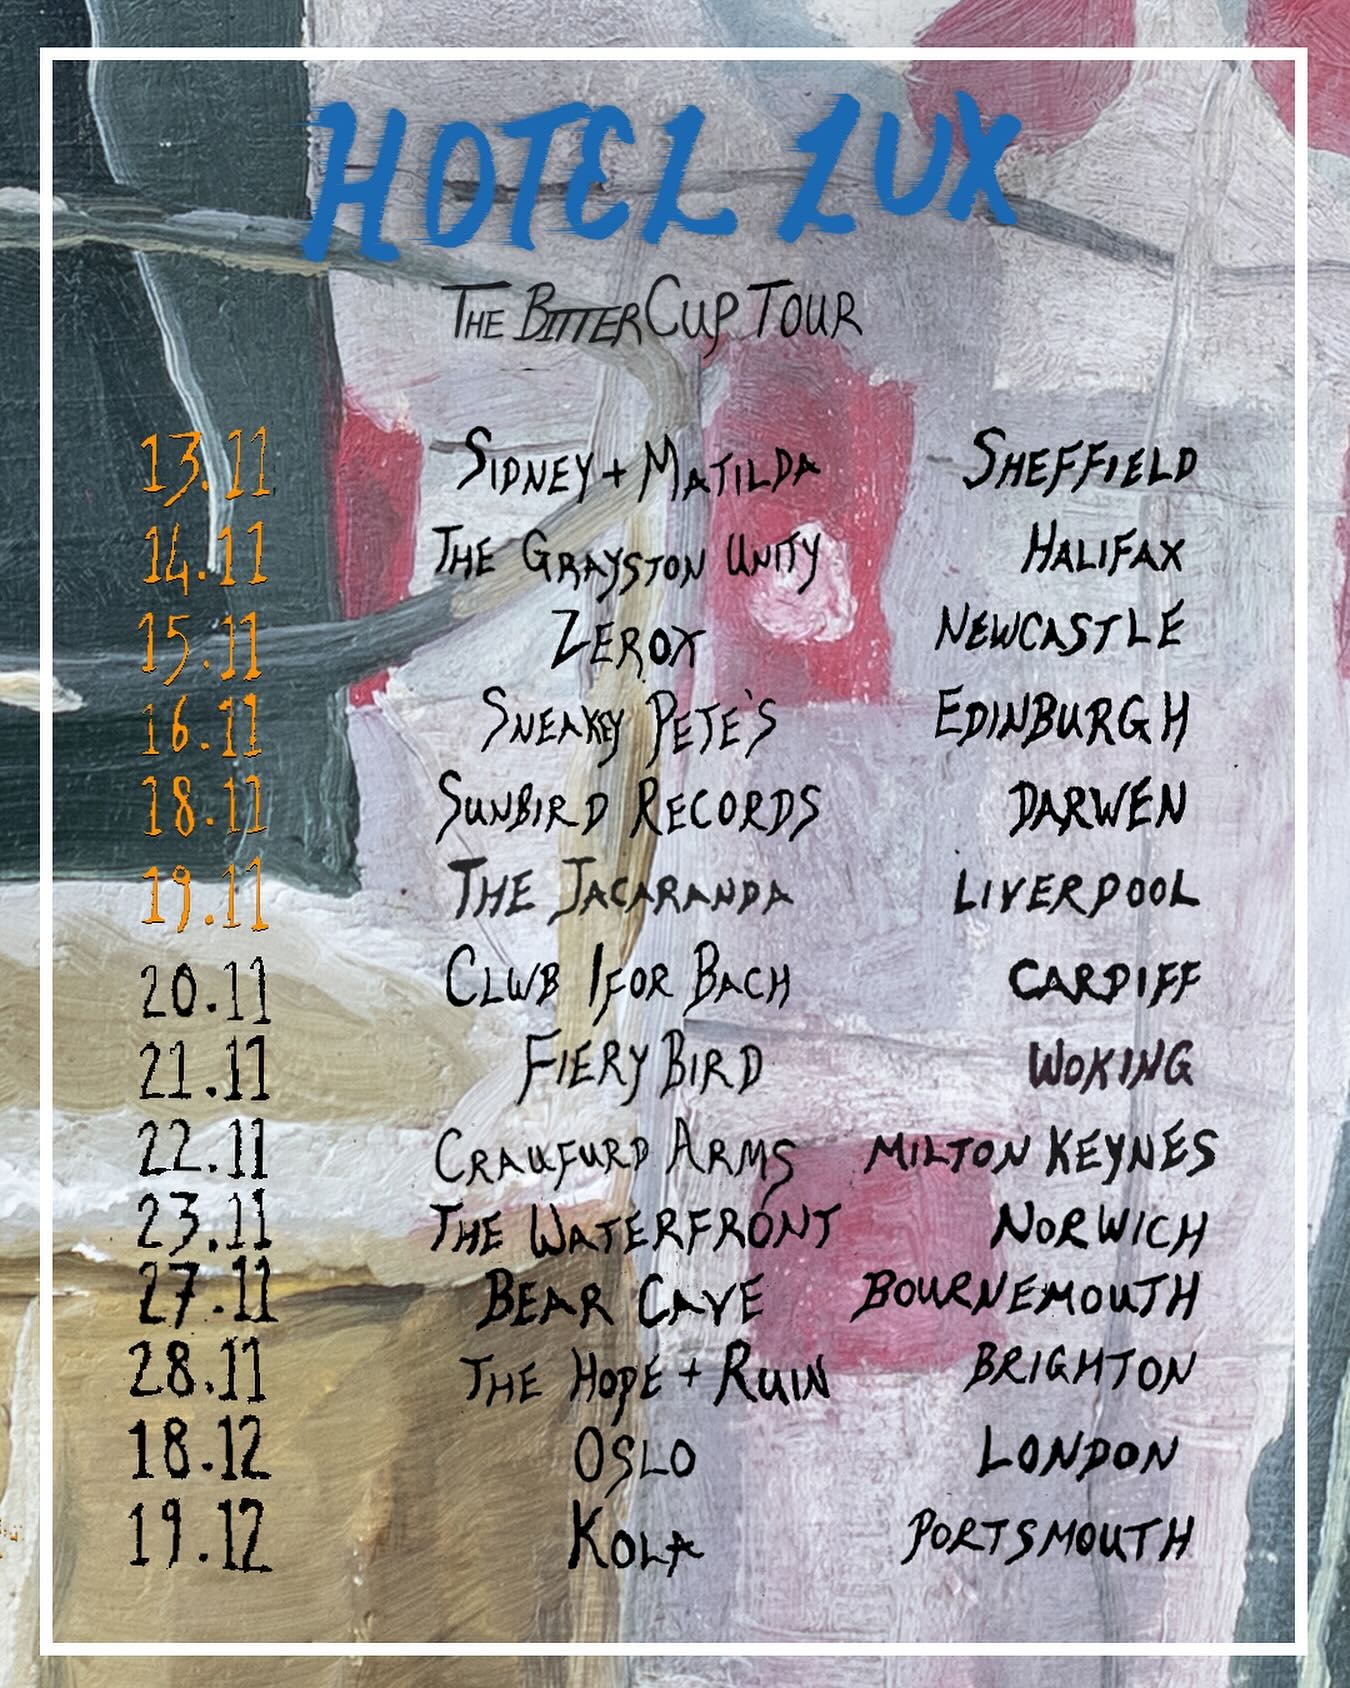 HOTEL LUX
THE BITTER CUP TOUR
13.11 SIDNEY + MATILDA SHEFFIELD
14.11 THE GRAYSTON UNITY HALIFAX
15.11 ZEROX NEWCASTLE
16.11 SNEAKEY PETE'S EDINBURGH
18.11 SUNBIRD RECORDS DARWEN
19.11 THE JACARANDA LIVERPOOL
20.11 CLWB IFOR BACH CARDIFF
21.11 FIERY BIRD WOKING
22.11 CRAUFURD ARMS MILTON KEYNES
23.11 THE WATERFRONT NORWICH
27.11 BEAR CAVE BOURNEMOUTH
28.11 THE HOPE + RUIN BRIGHTON
18.12 OSLO LONDON
19.12 KOLA PORTSMOUTH